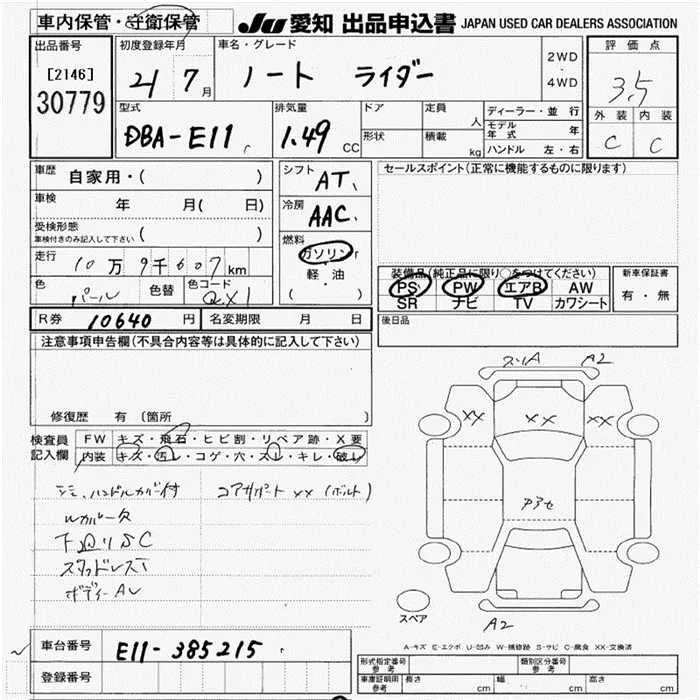 車内保管・守衛保管
JU 愛知 出品申込書 JAPAN USED CAR DEALERS ASSOCIATION
出品番号
[2146]
30779
初度登録年月
21 7 月
車名・グレード
ノート ライダー
2WD
・
4WD
評価点
3.5
外装 内装
C C
型式
DBA-E11
排気量
1.49 CC
ドア
形状
定員 人
積載 kg
ディーラー・並行
モデル年式 年
ハンドル 左・右
車歴
自家用・( )
車検 年 月( 日)
受検形態
車検付きのみ記入して下さい ( )
走行 10万9千607km
色 パール 色替 色コード QX1
シフト
AT
冷房
AAC
燃料
ガソリン
軽・油
( )
セールスポイント(正常に機能するものに限ります)
装備品(純正品に限り○をつけてください)
PS PW エアB AW
SR ナビ TV カワシート
新車保証書
有・無
R券 10640 円 名変期限 月 日
後日品
注意事項申告欄(不具合内容等は具体的に記入して下さい)
修復歴 有(箇所 )
検査員
記入欄
FW キズ・飛石・ヒビ割・リペア跡・X要
内装 キズ・汚レ・コゲ・穴・スレ・キレ・破レ
ハンドルカバー付 コアサポート XX (ボルト)
下廻りSC
スタッドレス
ボディー
A2
XX XX XX
A2
スペア
A-キズ E-エクボ U-凹み W-補修跡 S-サビ C-腐食 XX-交換済
車台番号 E11-385215
登録番号
形式指定番号
参考
類別区分番号
参考
車庫証明用
参考
長さ cm 幅 cm 高さ cm